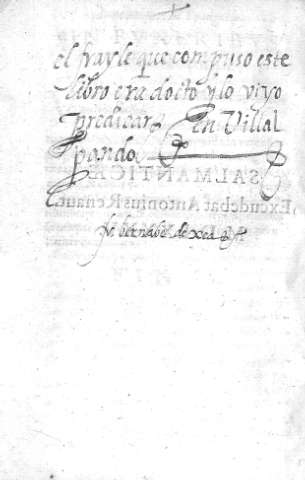 el frayle que compuso este
libro era docto y lo vi yo
predicar en Villal
pando
SALMANTICÆ
Excudebat Antonius Renaut
fr bernabe de